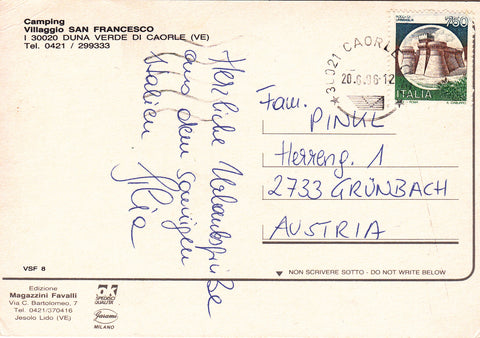 Camping
Villaggio SAN FRANCESCO
I 30020 DUNA VERDE DI CAORLE (VE)
Tel. 0421 / 299333
Herzliche Urlaubsgrüße
aus dem sonnigen
Italien
750
ITALIA
30021 CAORLE
20.6.96-12
Fam.
PINKL
Herreng. 1
2733 GRÜNBACH
AUSTRIA
NON SCRIVERE SOTTO - DO NOT WRITE BELOW
VSF 8
Edizione
Magazzini Favalli
Via C. Bartolomeo, 7
Tel. 0421/370416
Jesolo Lido (VE)
SPEDISCI
QUALITÀ
MILANO